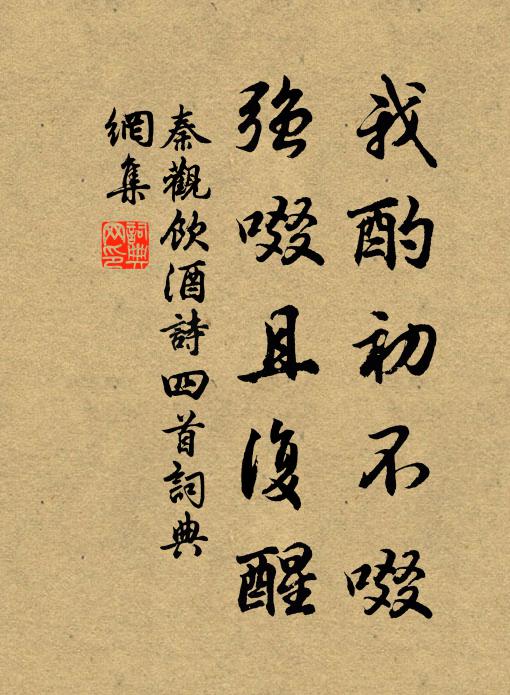 我酌初不啜
強啜且復醒
秦觀飲酒詩四首詞典
網集
詞典
网印